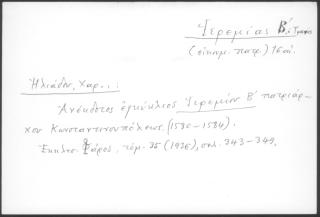 Ἱερεμίας Β΄ ὁ Τρανός
(οἰκουμ. πατρ.) 16 αἰ.
Ἠλιάδου, Χαρ.:
Ἀνέκδοτος ἐγκύκλιος Ἱερεμίου Β΄ πατριάρ-
χου Κωνσταντινουπόλεως. (1580-1584).
Ἐκκλησ. Φάρος, τόμ. 35 (1936), σελ. 343-349.